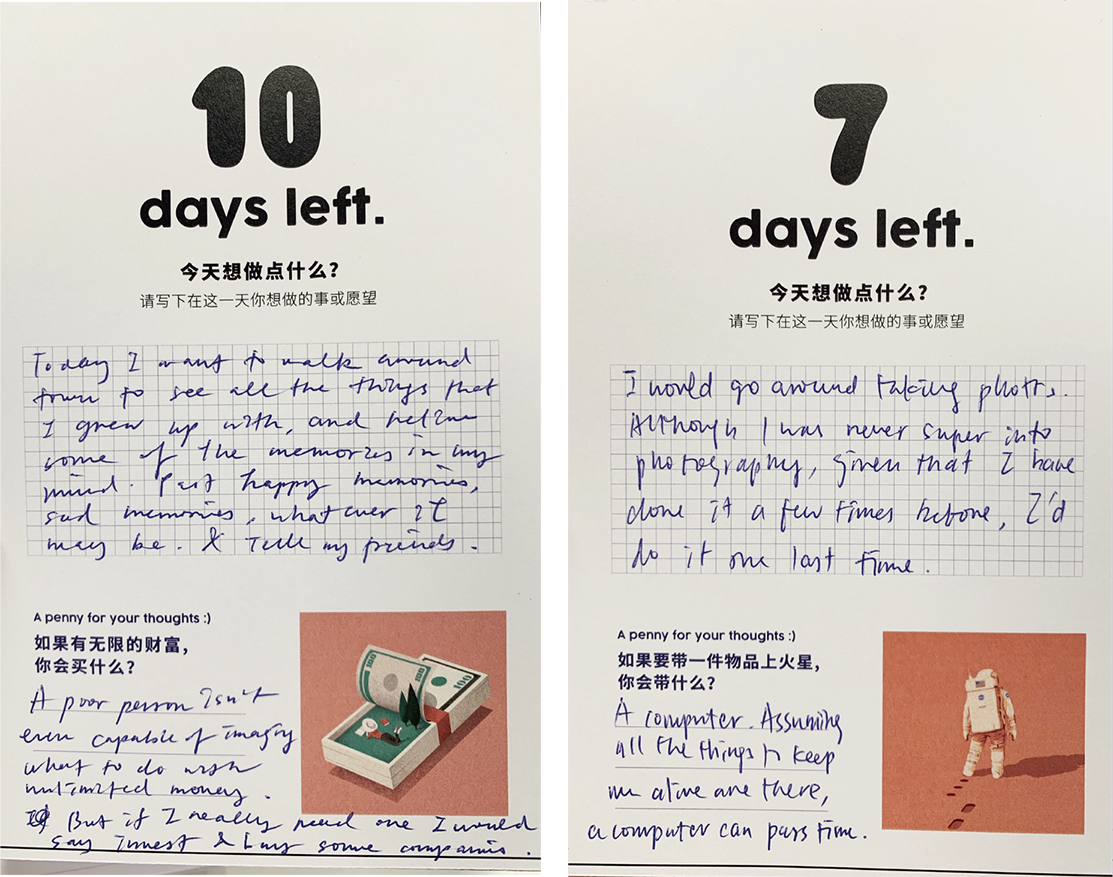 10
days left.
今天想做点什么?
请写下在这一天你想做的事或愿望
Today I want to walk around
town to see all the things that
I grew up with, and relive
some of the memories in my
mind. Past happy memories,
sad memories, whatever it
may be. & Tell my friends.
A penny for your thoughts :)
如果有无限的财富,
你会买什么?
A poor person isn't
even capable of imaging
what to do with
unlimited money.
But if I really need one I would
say invest & buy some companies.
100
100
7
days left.
今天想做点什么?
请写下在这一天你想做的事或愿望
I would go around taking photos.
Although I was never super into
photography, given that I have
done it a few times before, I'd
do it one last time.
A penny for your thoughts :)
如果要带一件物品上火星,
你会带什么?
A computer. Assuming
all the things to keep
me alive are there,
a computer can pass time.